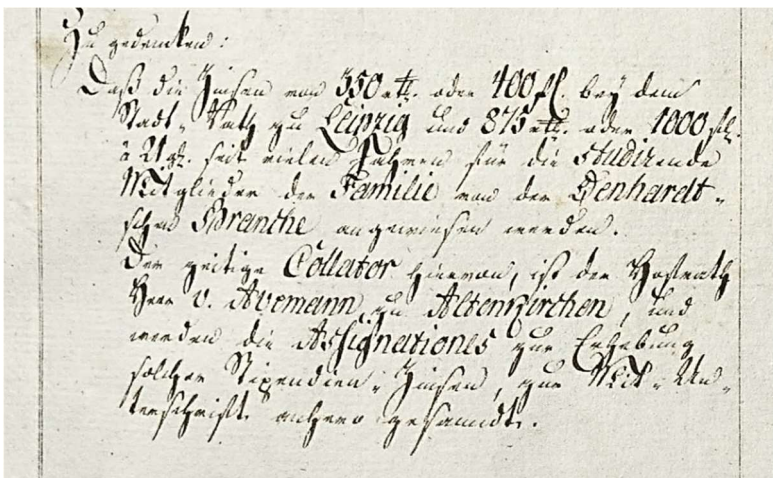 Zu gedencken:
Daß die Zinsen von 350 rtl. oder 400 fl. bey dem
Stadt-Rath zu Leipzig und 875 rtl. oder 1000 fl.
à 21 gl. seit vielen Jahren für die studirende
Mitglieder der Familie von der Denhardt-
schen Branche angewiesen werden.
Der zeitige Collator hiervon, ist der Hofrath
Herr v. Avemann zu Altenkirchen, und
werden die Assignationes zur Erhebung
solcher Stipendien-Zinsen, zur Mit-Un-
terschrift anhero gesandt.